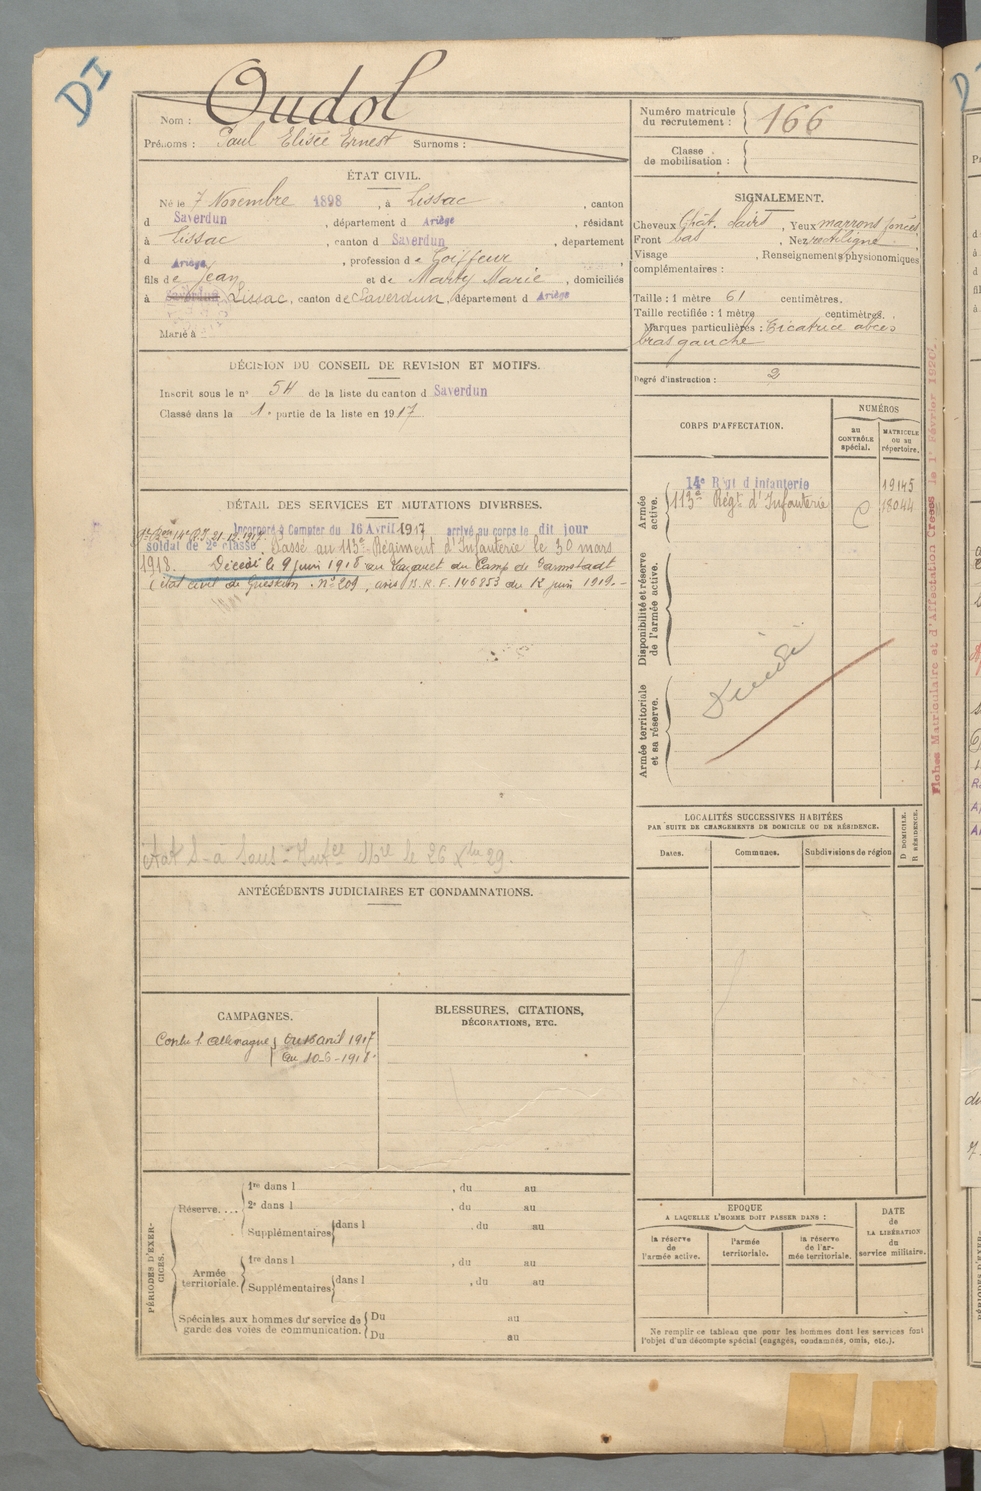 DI
Nom : Oudol
Prénoms : Paul Elisée Ernest Surnoms :
Numéro matricule du recrutement : 166
Classe de mobilisation :
ÉTAT CIVIL.
Né le 7 Novembre 1898, à Lissac, canton
d Saverdun, département d Ariège, résidant
à Lissac, canton d Saverdun, département
d Ariège, profession de Coiffeur,
fils de Jean et de Marty Marie, domiciliés
à Saverdun Lissac, canton de Saverdun, département d Ariège
Marié à
SIGNALEMENT.
Cheveux Chât. clairs, Yeux marrons foncés
Front bas, Nez rectiligne
Visage , Renseignements physionomiques
complémentaires :
Taille : 1 mètre 61 centimètres.
Taille rectifiée : 1 mètre centimètres.
Marques particulières : Cicatrice abcès
bras gauche
Degré d'instruction : 3
DÉCISION DU CONSEIL DE REVISION ET MOTIFS.
Inscrit sous le n° 54 de la liste du canton d Saverdun
Classé dans la 1e partie de la liste en 1917
CORPS D'AFFECTATION.
NUMÉROS
au CONTRÔLE spécial.
MATRICULE ou au répertoire.
Armée active.
14e Rgt d'infanterie 19145
113e Régt d'Infanterie 18044
Disponibilité et réserve de l'armée active.
Armée territoriale et sa réserve.
Décédé
DÉTAIL DES SERVICES ET MUTATIONS DIVERSES.
Incorporé à Compter du 16 Avril 1917 arrivé au corps le dit jour
21.12.1917
soldat de 2e classe. Passé au 113e Régiment d'Infanterie le 30 mars
1918. Décédé le 9 juin 1918 au Lazaret du Camp de Darmstadt
(état civil de n° 209, avis B.R.F. 146253 du 12 juin 1919.-
le 26 Xbre 29.
ANTÉCÉDENTS JUDICIAIRES ET CONDAMNATIONS.
CAMPAGNES.
Contre l'allemagne
au 10-6-1918.
BLESSURES, CITATIONS,
DÉCORATIONS, ETC.
LOCALITÉS SUCCESSIVES HABITÉES
PAR SUITE DE CHANGEMENTS DE DOMICILE OU DE RÉSIDENCE.
Dates.
Communes.
Subdivisions de région.
D DOMICILE.
R RÉSIDENCE.
PÉRIODES D'EXERCICES.
Réserve....
1re dans l , du au
2e dans l , du au
Supplémentaires dans l , du au
Armée territoriale.
1re dans l , du au
Supplémentaires dans l , du au
Spéciales aux hommes du service de
garde des voies de communication.
Du au
Du au
EPOQUE
A LAQUELLE L'HOMME DOIT PASSER DANS :
la réserve de l'armée active.
l'armée territoriale.
la réserve de l'armée territoriale.
DATE de LA LIBÉRATION du service militaire.
Ne remplir ce tableau que pour les hommes dont les services font
l'objet d'un décompte spécial (engagés, condamnés, omis, etc.).
Fiches Matriculaire et d'Affectation Creées le 1er Février 1920.